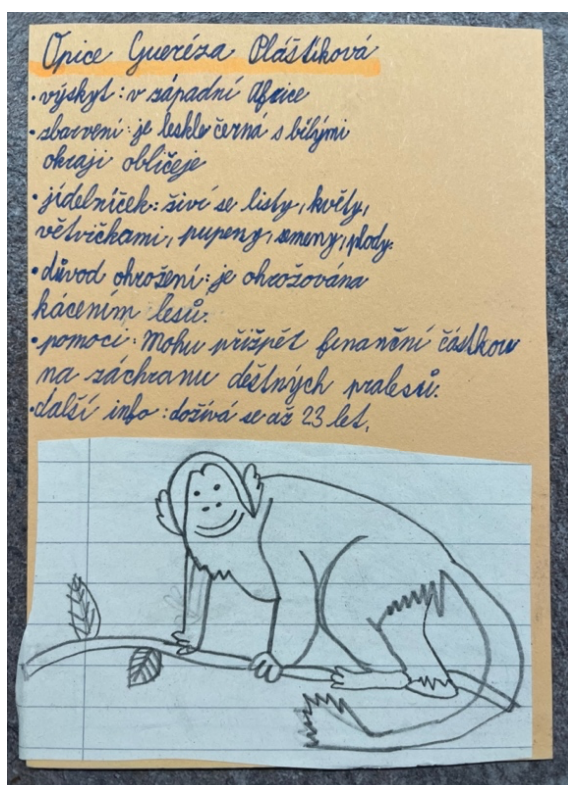 Opice Gueréza Pláštíková
• výskyt: v západní Africe
• sbarvení: je leskle černá s bílými
okraji obličeje
• jídelníček: živí se listy, květy,
větvičkami, pupeny, semeny, plody.
• důvod ohrožení: je ohrožována
kácením lesů.
• pomoci: Mohu přizpět finanční částkou
na záchranu deštných pralesů.
• další info: dožívá se až 23 let.